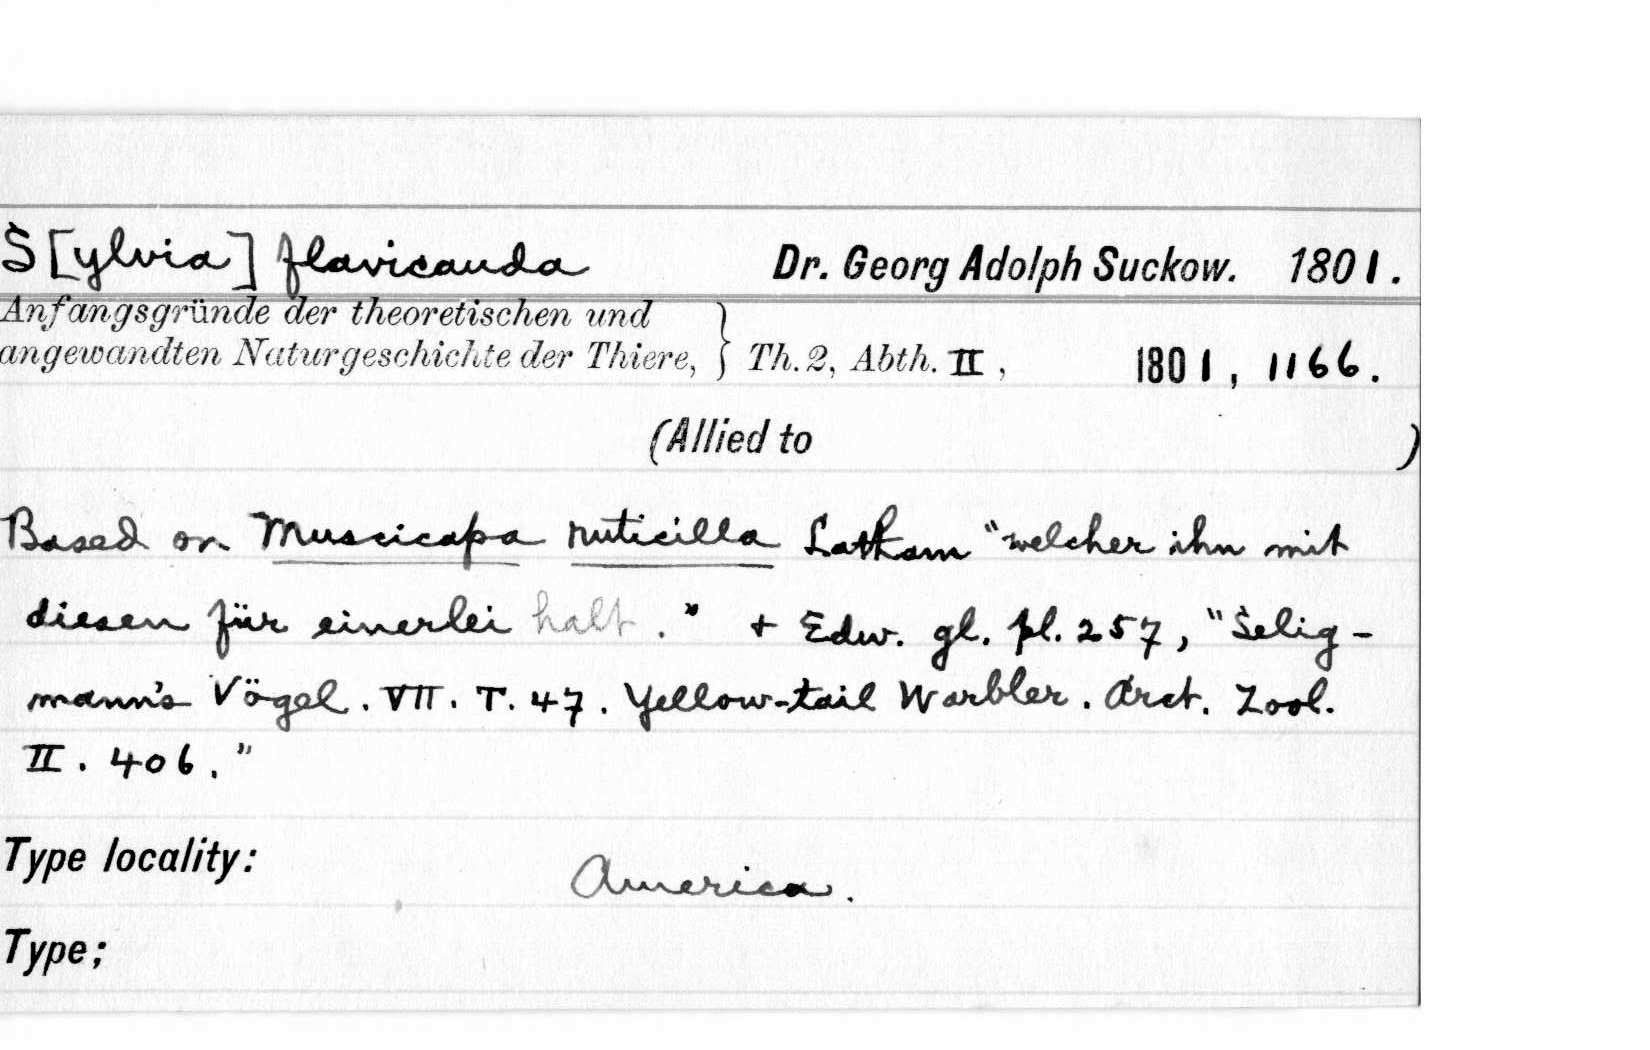 S[ylvia] flavicauda Dr. Georg Adolph Suckow. 1801.
Anfangsgründe der theoretischen und
angewandten Naturgeschichte der Thiere, } Th. 2, Abth. II, 1801, 1166.
(Allied to )
Based on Muscicapa ruticilla Latham "welcher ihn mit
diesen für einerlei halt." + Edw. gl. pl. 257, "Selig-
mann's Vögel. VII. T. 47. Yellow-tail Warbler. Arct. Zool.
II. 406."
Type locality: America.
Type;